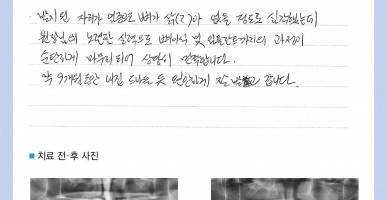 발치된 자리가 염증으로 뼈가 삭(?)아 없을 정도로 심각했는데
원장님의 노련한 실력으로 뼈이식 및 임플란트까지의 과정이
순탄하게 마무리되어 상당히 만족합니다.
약 9개월동안 내집 드나들 듯 편안하게 잘 받고 갑니다.
■ 치료 전·후 사진